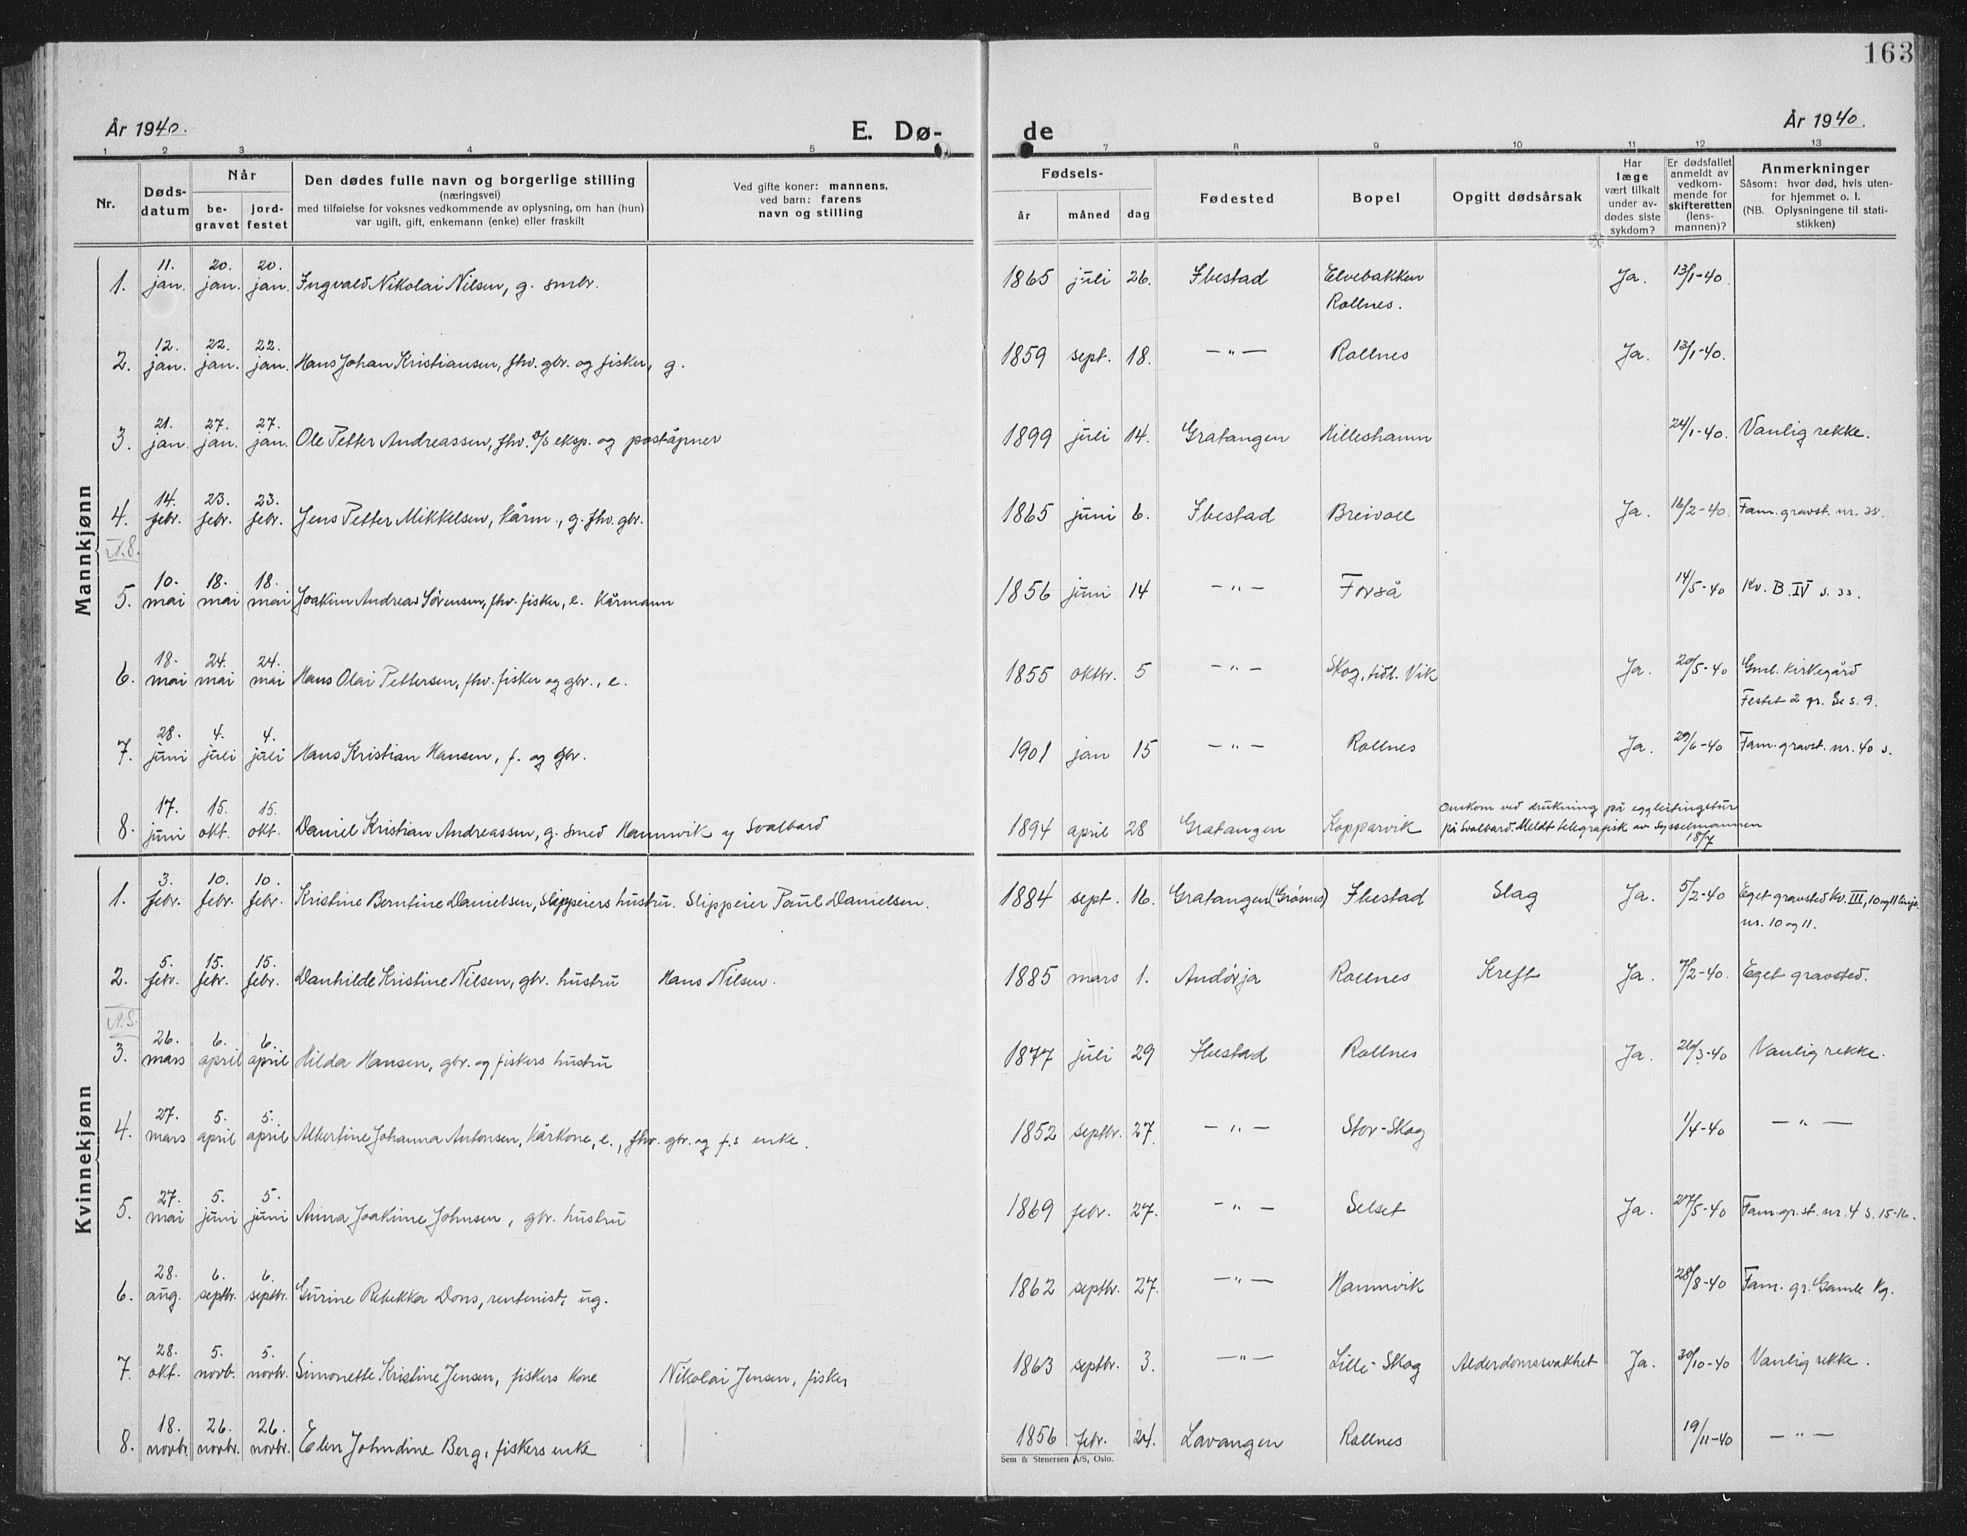 163
År 1940.
E. Dø-
de
År 1940.
1 2 3 4 5 7 8 9 10 11 12 13
Nr.
Døds-
datum
Når
be-
gravet
jord-
festet
Den dødes fulle navn og borgerlige stilling
(næringsvei)
med tilføielse for voksnes vedkommende av oplysning, om han (hun)
var ugift, gift, enkemann (enke) eller fraskilt
Ved gifte koner: mannens,
ved barn: farens
navn og stilling
Fødsels-
år måned dag
Fødested
Bopel
Opgitt dødsårsak
Har
læge
vært tilkalt
under av-
dødes siste
sykdom?
Er dødsfallet
anmeldt av
vedkom-
mende for
skifteretten
(lens-
mannen)?
Anmerkninger
Såsom: hvor død, hvis uten-
for hjemmet o. l.
(NB. Oplysningene til stati-
stikken)
Mannkjønn
1. 11. jan. 20. jan. 20. jan. Ingvald Nikolai Nilsen, g. smbr. 1865 juli 26. Ibestad Elvebakken Ja. 13/1-40.
Rollnes.
2. 12. jan. 22. jan. 22. jan. Hans Johan Kristiansen, fhv. gbr. og fisker, g. 1859 sept. 18. —"— Rollnes Ja. 13/1-40.
3. 21. jan. 27. jan. 27. jan. Ole Petter Andreassen, fhv. d/s eksp. og poståpner 1899 juli 14. Gratangen Hilleshamn 24/1-40. Vanlig rekke.
4. 14. febr. 23. febr. 23. febr. Jens Petter Mikkelsen, kårm., g. fhv. gbr. 1865 juni 6. Ibestad Breivoll Ja. 16/2-40. Fam. gravst. nr.
5. 10. mai 18. mai 18. mai Joakim Andreas Sørensen, fhv. fisker, e. Kårmann 1856 juni 14 —"— Forså 14/5-40 Kv. B. IV s. 33.
6. 18. mai 24. mai 24. mai Hans Olai Pettersen, fhv. fisker og gbr., e. 1855 oktbr. 5 —"— Skog, tidl. Vik Ja. 20/5-40 Gml. kirkegård
Festet 2 gr. Se s. 9.
7. 28. juni 4. juli 4. juli Hans Kristian Hansen, f. og gbr. 1901 jan 15 —"— Rollnes Ja. 29/6-40 Fam. gravst. nr. 40 s.
8. 17. juni 15. okt. 15. okt. Daniel Kristian Andreassen, g. smed Hamnvik y Svalbard 1894 april 28 Gratangen Kopparvik Omkom ved drukning på eggleitingstur
på Svalbard. Meldt telegrafisk av Sysselmannen
18/7
Kvinnekjønn
1. 3. febr. 10. febr. 10. febr. Kristine Berntine Danielsen, slippeiers hustru. Slippeier Paul Danielsen. 1884 sept. 16. Gratangen (Grøsnes) Ibestad Slag Ja. 5/2-40 Eget gravsted Kv. III, 10 og 11 linje
nr. 10 og 11.
2. 5. febr. 15. febr. 15. febr. Danhilde Kristine Nilsen, gbr. hustru Hans Nilsen. 1885 mars 1. Andørja Rollnes Kreft Ja. 7/2-40. Eget gravsted.
3. 26. mars 6. april 6. april Hilda Hansen, gbr. og fiskers hustru 1877 juli 29 Ibestad Rollnes Ja. 26/3-40 Vanlig rekke.
4. 27. mars 5. april 5. april Albertine Johanna Antonsen, kårkone, e., fhv. gbr. og f.s enke. 1852 septbr. 27. —"— Stor-Skog 1/4-40 —"—
5. 27. mai 5. juni 5. juni Anna Joakime Johnsen, gbr. hustru 1869 febr. 27. —"— Selset Ja. 27/5-40 Fam. gr. st. nr. 4 s. 15-16.
6. 28. aug. 6. septbr. 6. septbr. Gurine Rebekka Dons, rentenist, ug. 1862 septbr. 27. —"— Hamnvik 28/8-40 Fam. gr. Gamle Kg.
7. 28. okt. 5. novb. 5. novbr. Simonette Kristine Jensen, fiskers kone Nikolai Jensen, fisker 1863 septbr. 3. —"— Lille-Skog Alderdomssvakhet Ja. 30/10-40 Vanlig rekke.
8. 18. novbr. 26. novbr. 26. novbr. Elen Johndine Berg, fiskers enke 1856 febr. 24. Lavangen Rollnes 19/11-40 —"—
Sem & Stenersen A/S, Oslo.